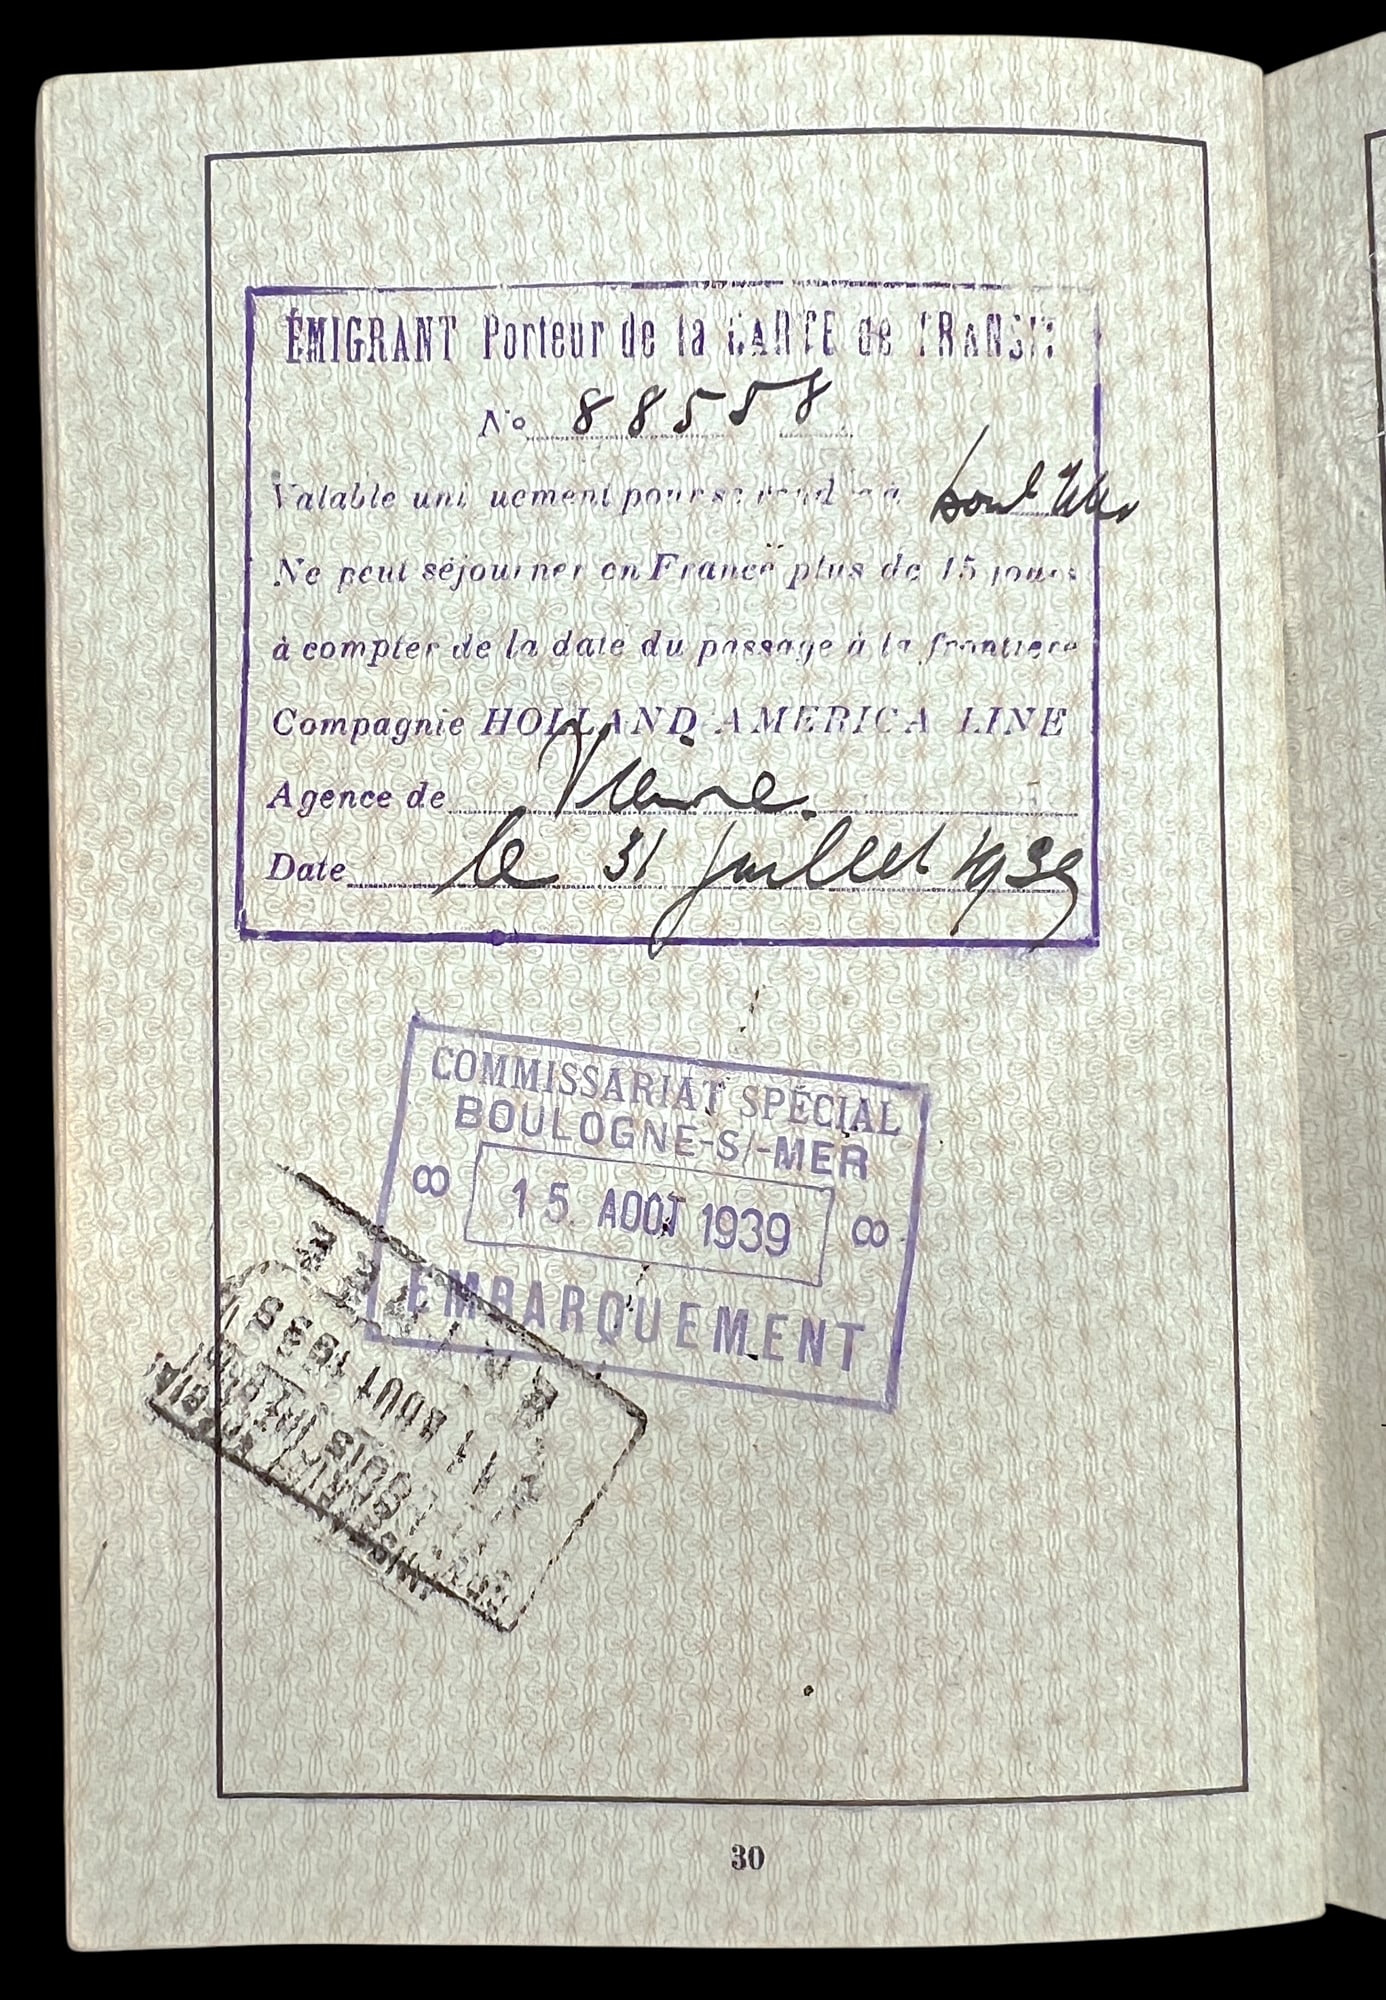 ÉMIGRANT Porteur de la CARTE de TRANSIT
No 88558
Valable uniquement pour se rendre à
Ne peut séjourner en France plus de 15 jours
à compter de la date du passage à la frontière
Compagnie HOLLAND AMERICA LINE
Agence de Vienne
Date le 31 juillet 1939
COMMISSARIAT SPÉCIAL
BOULOGNE-S/-MER
8 15. AOÛT 1939 8
EMBARQUEMENT
ENTRÉE
11 AOUT 1939
St LOUIS
30